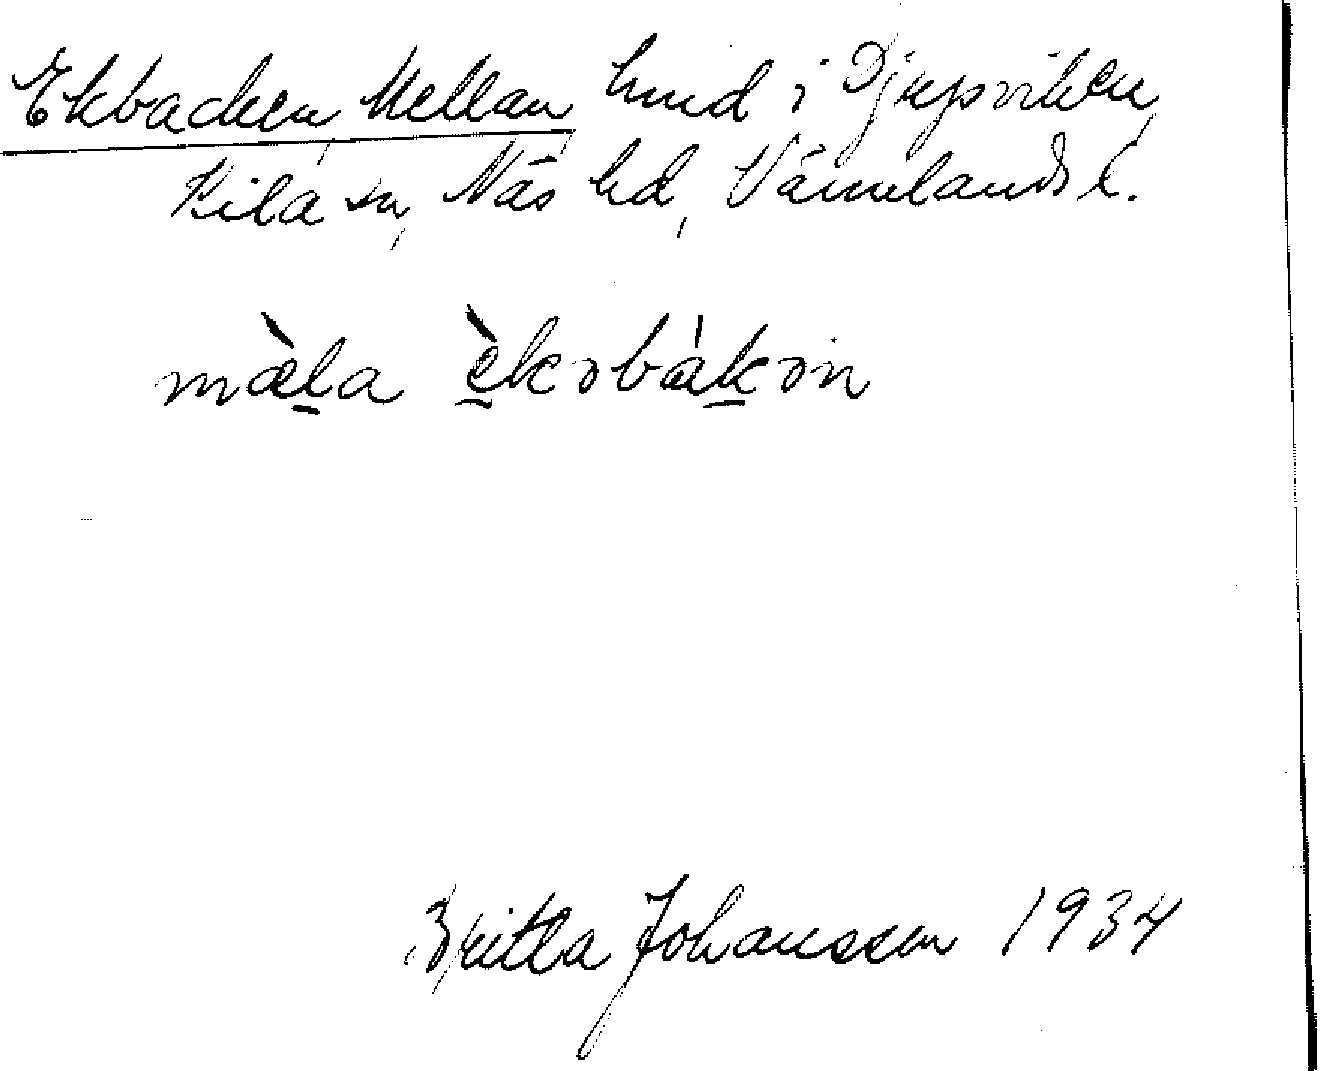 Ekbacken, Mellan hmd i Djupviken,
Kila sn, Näs hd, Värmlands l.
mæ̀la èkɔbákɔn
Britta Johansson 1934